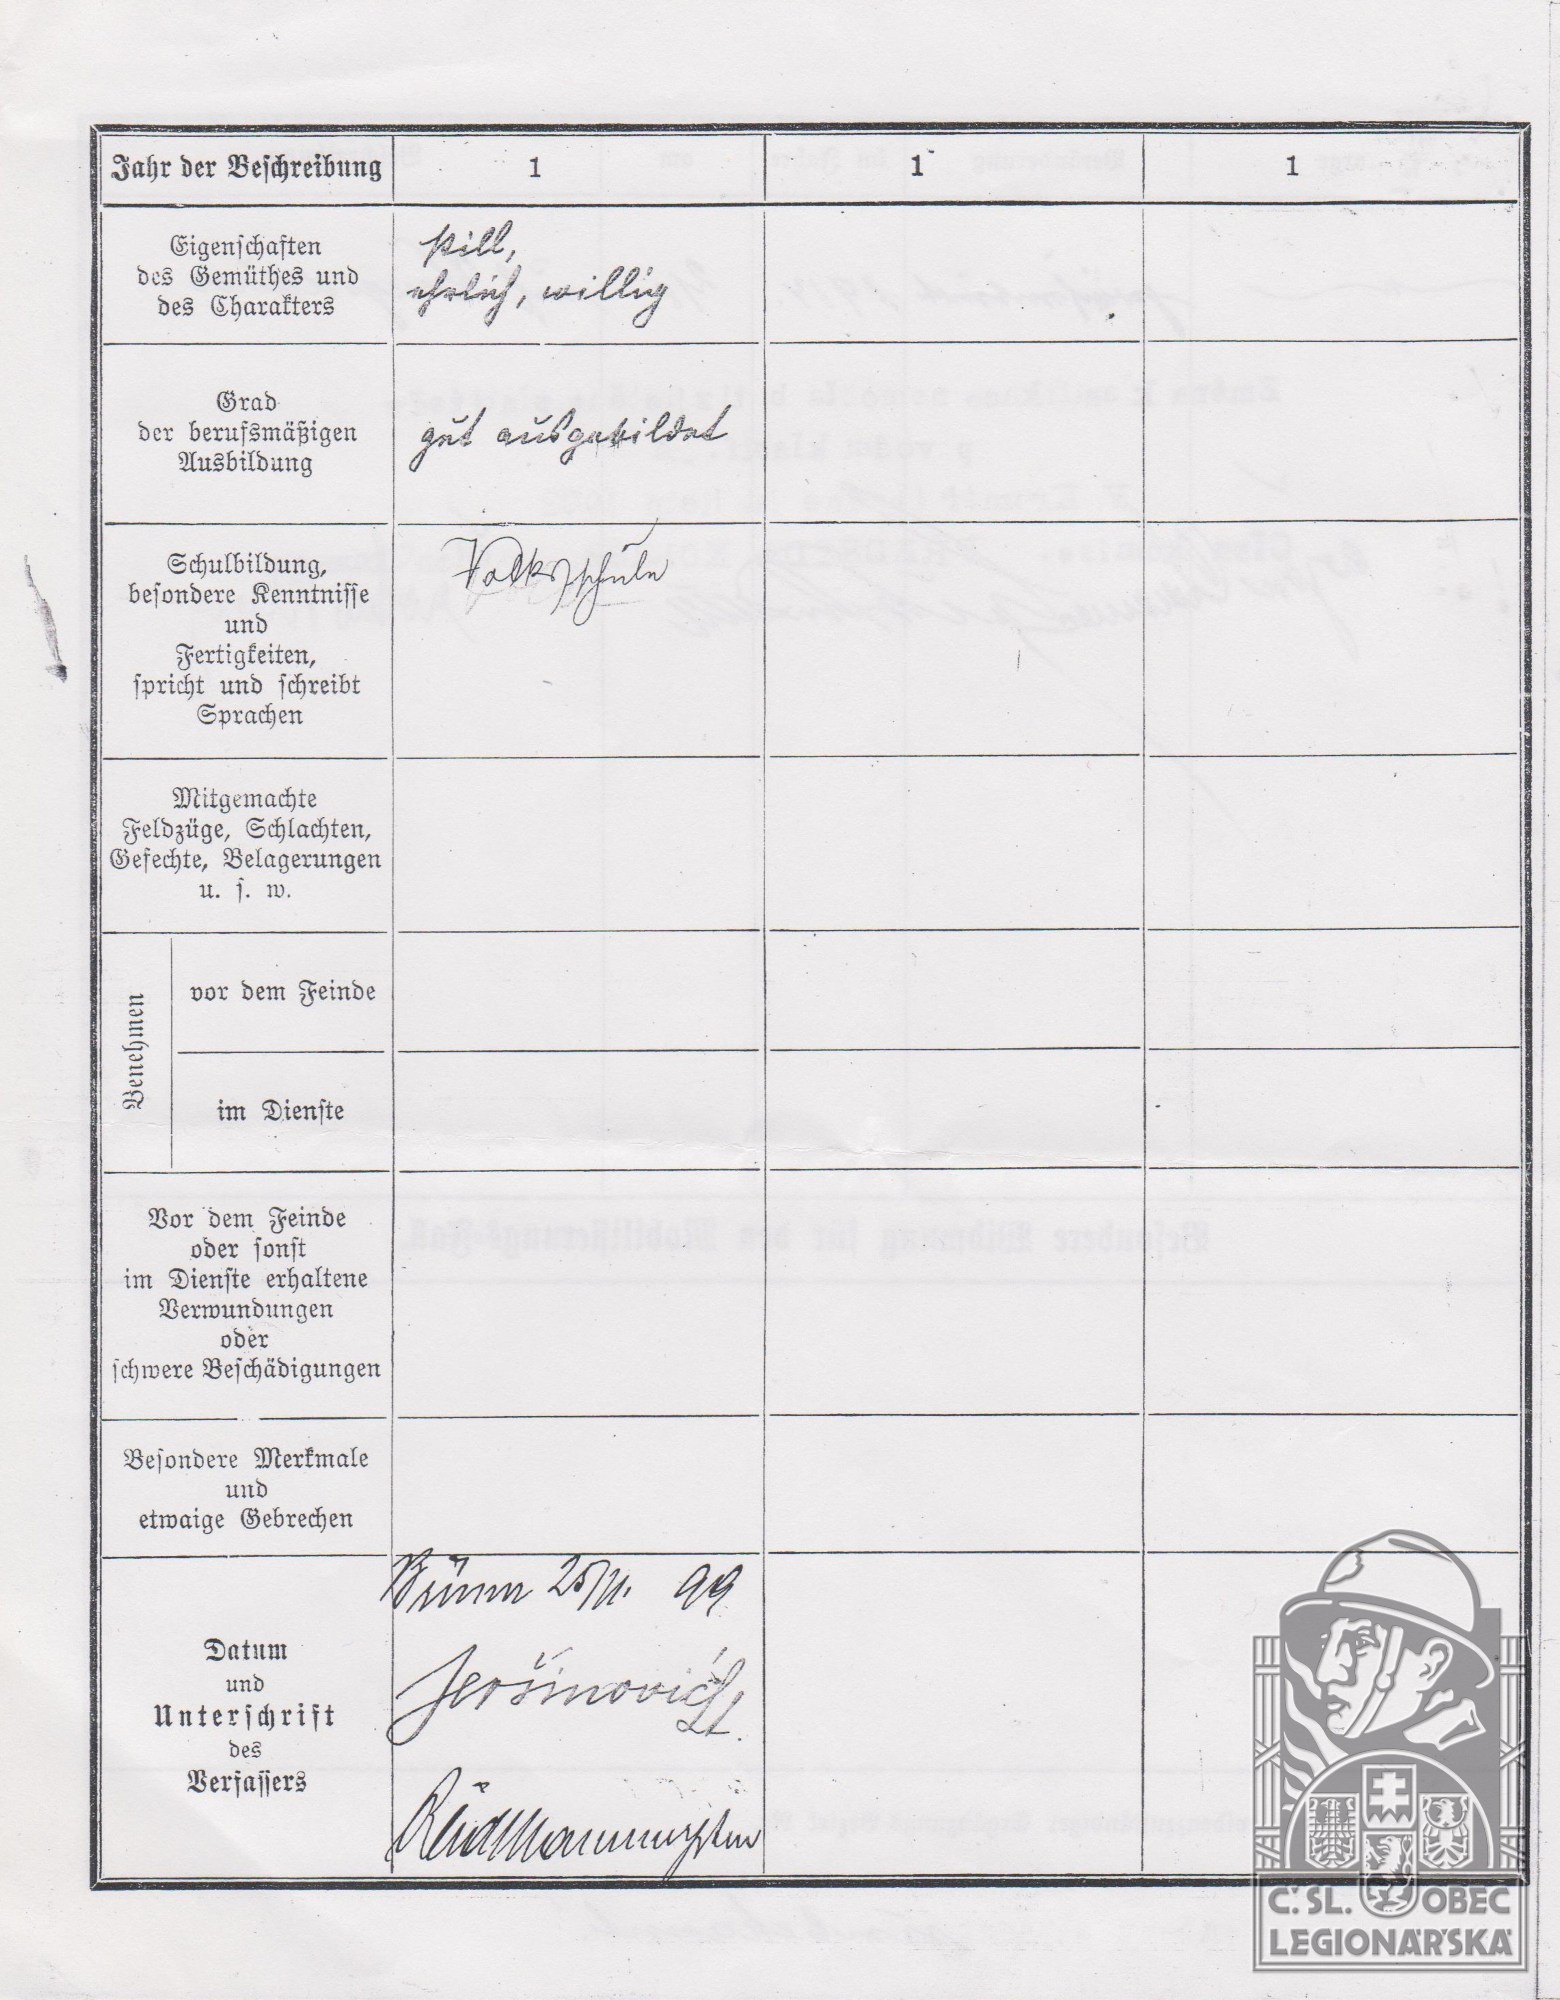 Jahr der Beschreibung 1 1 1
Eigenschaften
des Gemüthes und
des Charakters
still,
ehrlich, willig
Grad
der berufsmäßigen
Ausbildung
gut ausgebildet
Schulbildung,
besondere Kenntnisse
und
Fertigkeiten,
spricht und schreibt
Sprachen
Volksschule
Mitgemachte
Feldzüge, Schlachten,
Gefechte, Belagerungen
u. s. w.
Benehmen
vor dem Feinde
im Dienste
Vor dem Feinde
oder sonst
im Dienste erhaltene
Verwundungen
oder
schwere Beschädigungen
Besondere Merkmale
und
etwaige Gebrechen
Datum
und
Unterschrift
des
Verfassers
Brünn 25/11. 99
Jeršinović Lt.
Č.SL. OBEC
LEGIONÁŘSKÁ